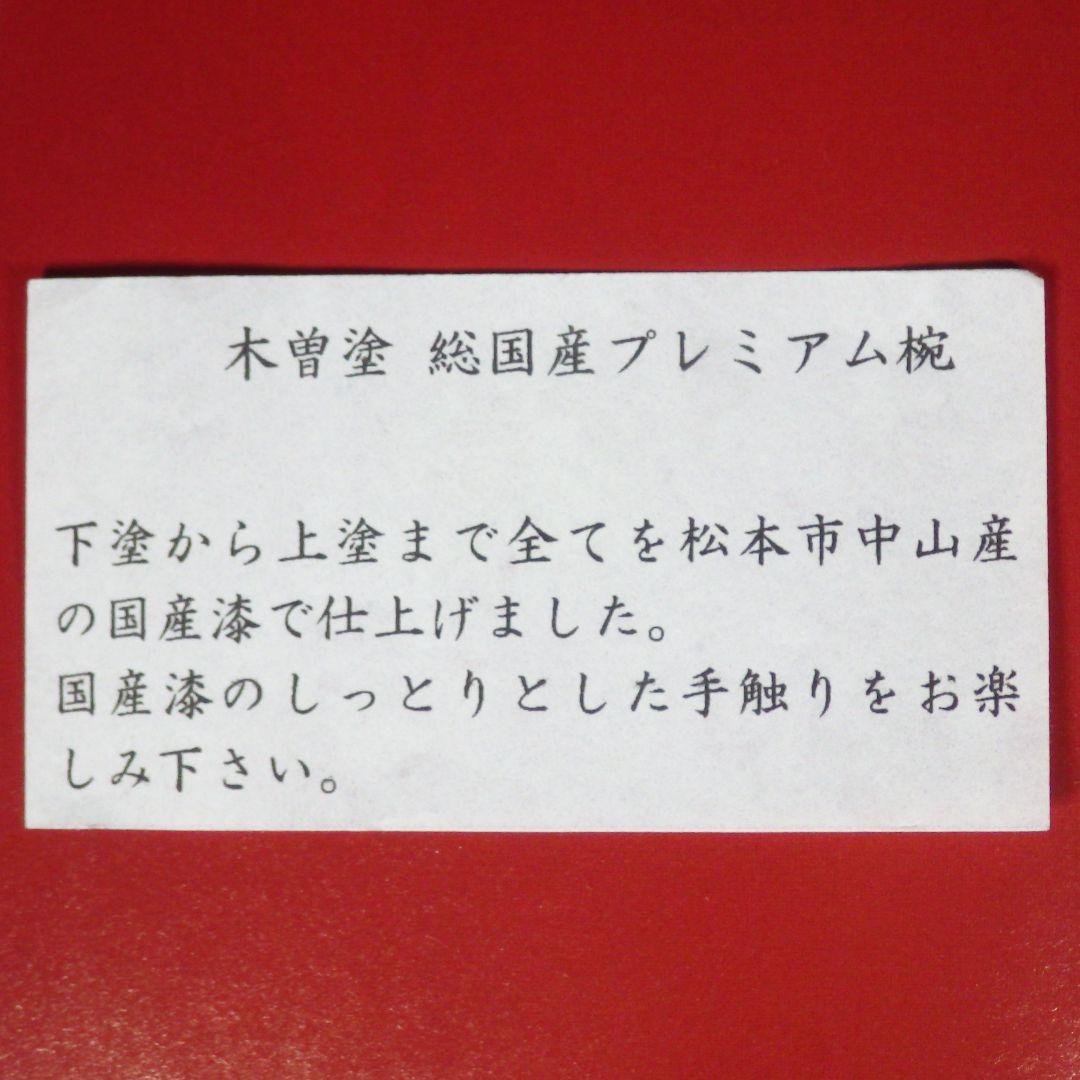 木曽塗 総国産プレミアム椀
下塗から上塗まで全てを松本市中山産
の国産漆で仕上げました。
国産漆のしっとりとした手触りをお楽
しみ下さい。